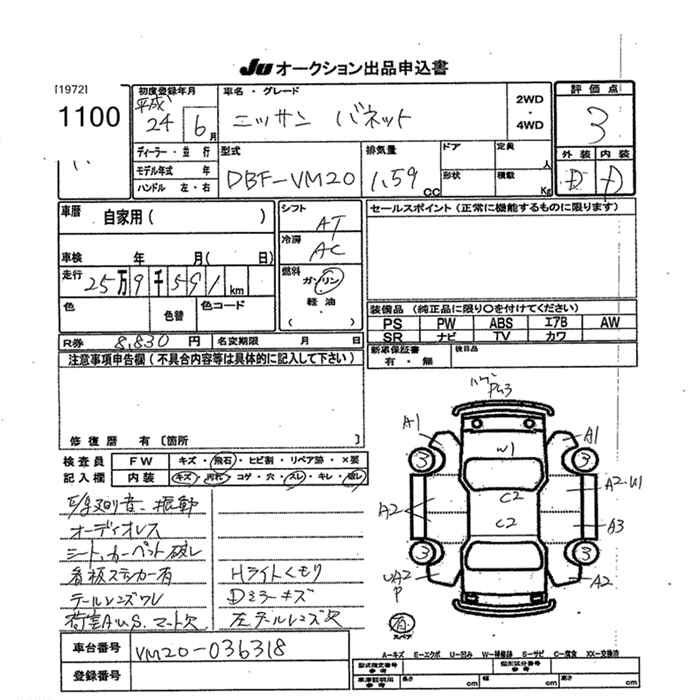 JU オークション出品申込書
[1972]
1100
初度登録年月
平成
24 6月
車名・グレード
ニッサン バネット
2WD
・
4WD
評価点
3
外装 内装
D D
ディーラー・並行
モデル年式 年
ハンドル 左・右
型式
DBF-VM20
排気量
1.59 CC
ドア
形状
定員
人
積載
Kg
車歴
自家用( )
車検 年 月( 日)
走行
25万9千591km
色
色替
色コード
シフト
AT
冷房
AC
燃料
ガソリン
軽油
( )
セールスポイント(正常に機能するものに限ります)
装備品(純正品に限り○を付けてください)
PS PW ABS エアB AW
SR ナビ TV カワ
新車保証書
有・無
後日品
R券 8,830円
名変期限 月 日
注意事項申告欄(不具合内容等は具体的に記入して下さい)
修復歴 有[箇所
検査員
記入欄
FW キズ・飛石・ヒビ割・リペア跡・×要
内装 キズ・汚れ・コゲ・穴・スレ・キレ・破レ
振動
オーディオレス
シート、カーペット破レ
看板ステッカー有
テールレンズワレ
Hライトくもり
Dミラーキズ
左テールレンズ欠
車台番号 VM20-036318
登録番号
A1 A1
3 3
W1
A2 C2 A2・W1
C2 A3
3 3
UA2 A2
P
有
スペア
A=キズ E=エクボ U=凹み W=補修跡 S=サビ C=腐食 XX=交換済
型式指定番号
参考
類別区分番号
参考
車庫証明用
参考
長さ cm 幅 cm 高さ cm